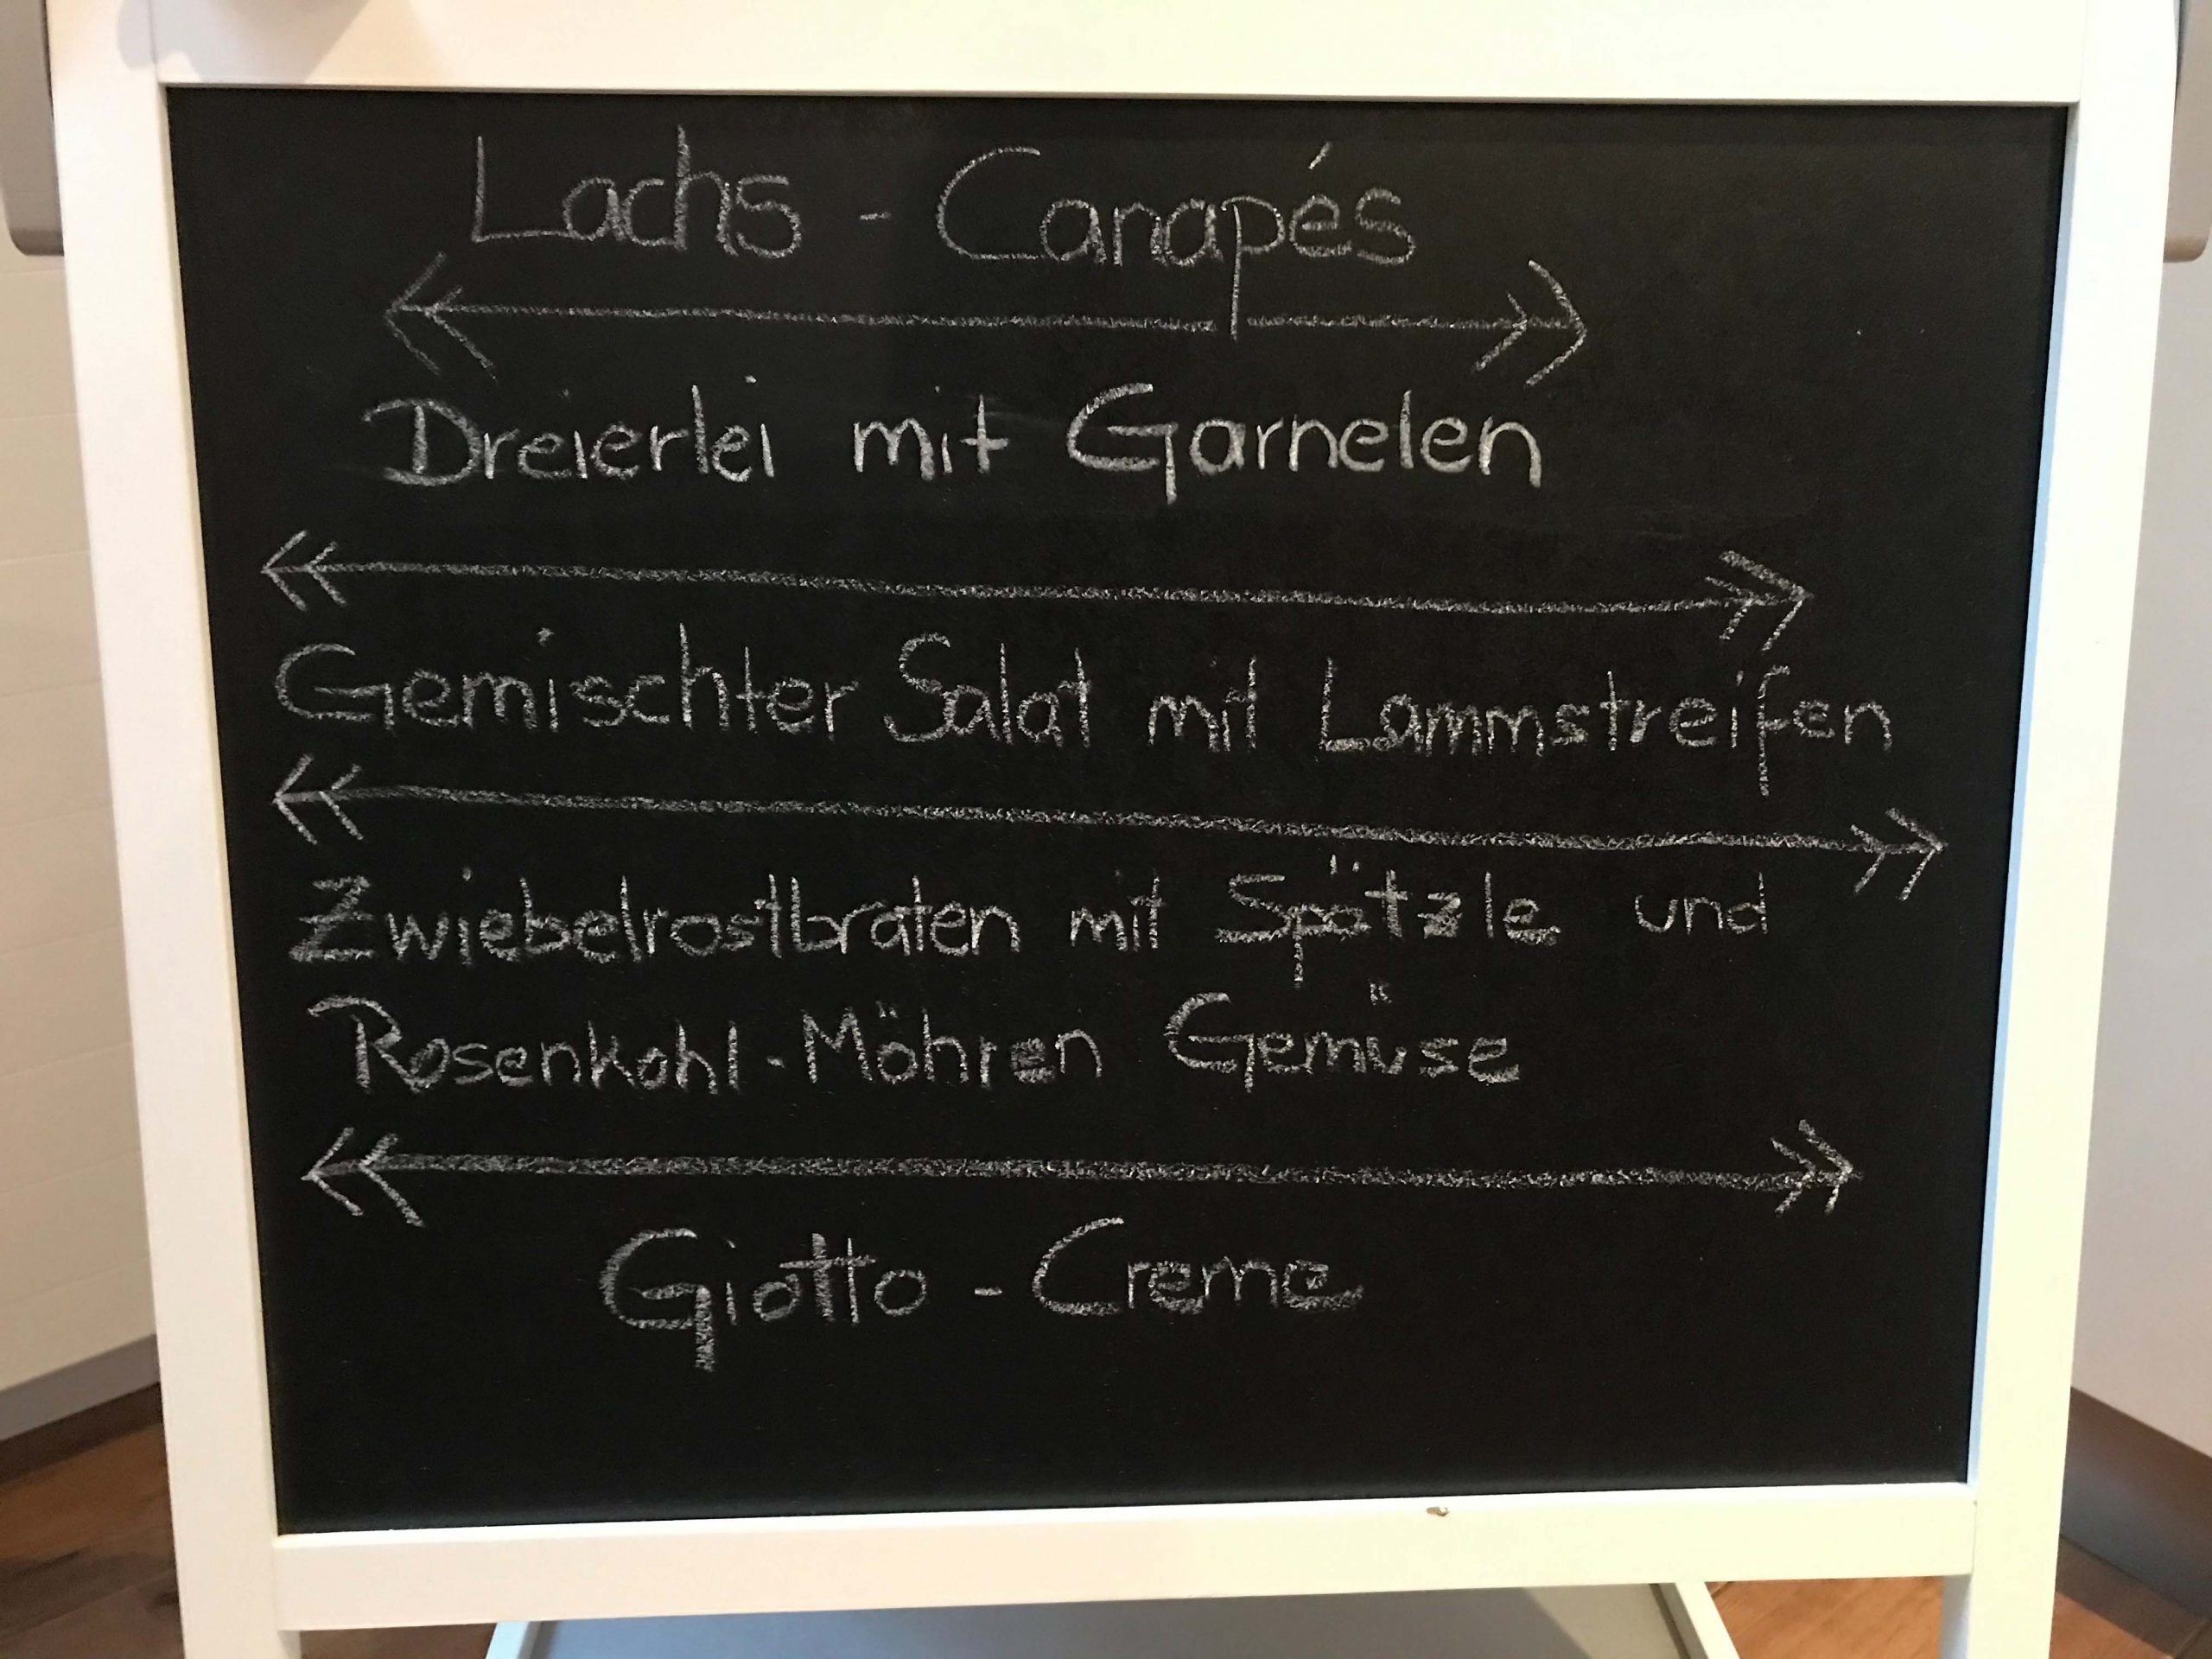 Lachs - Canapés
Dreierlei mit Garnelen
Gemischter Salat mit Lammstreifen
Zwiebelrostbraten mit Spätzle und
Rosenkohl-Möhren Gemüse
Giotto - Creme